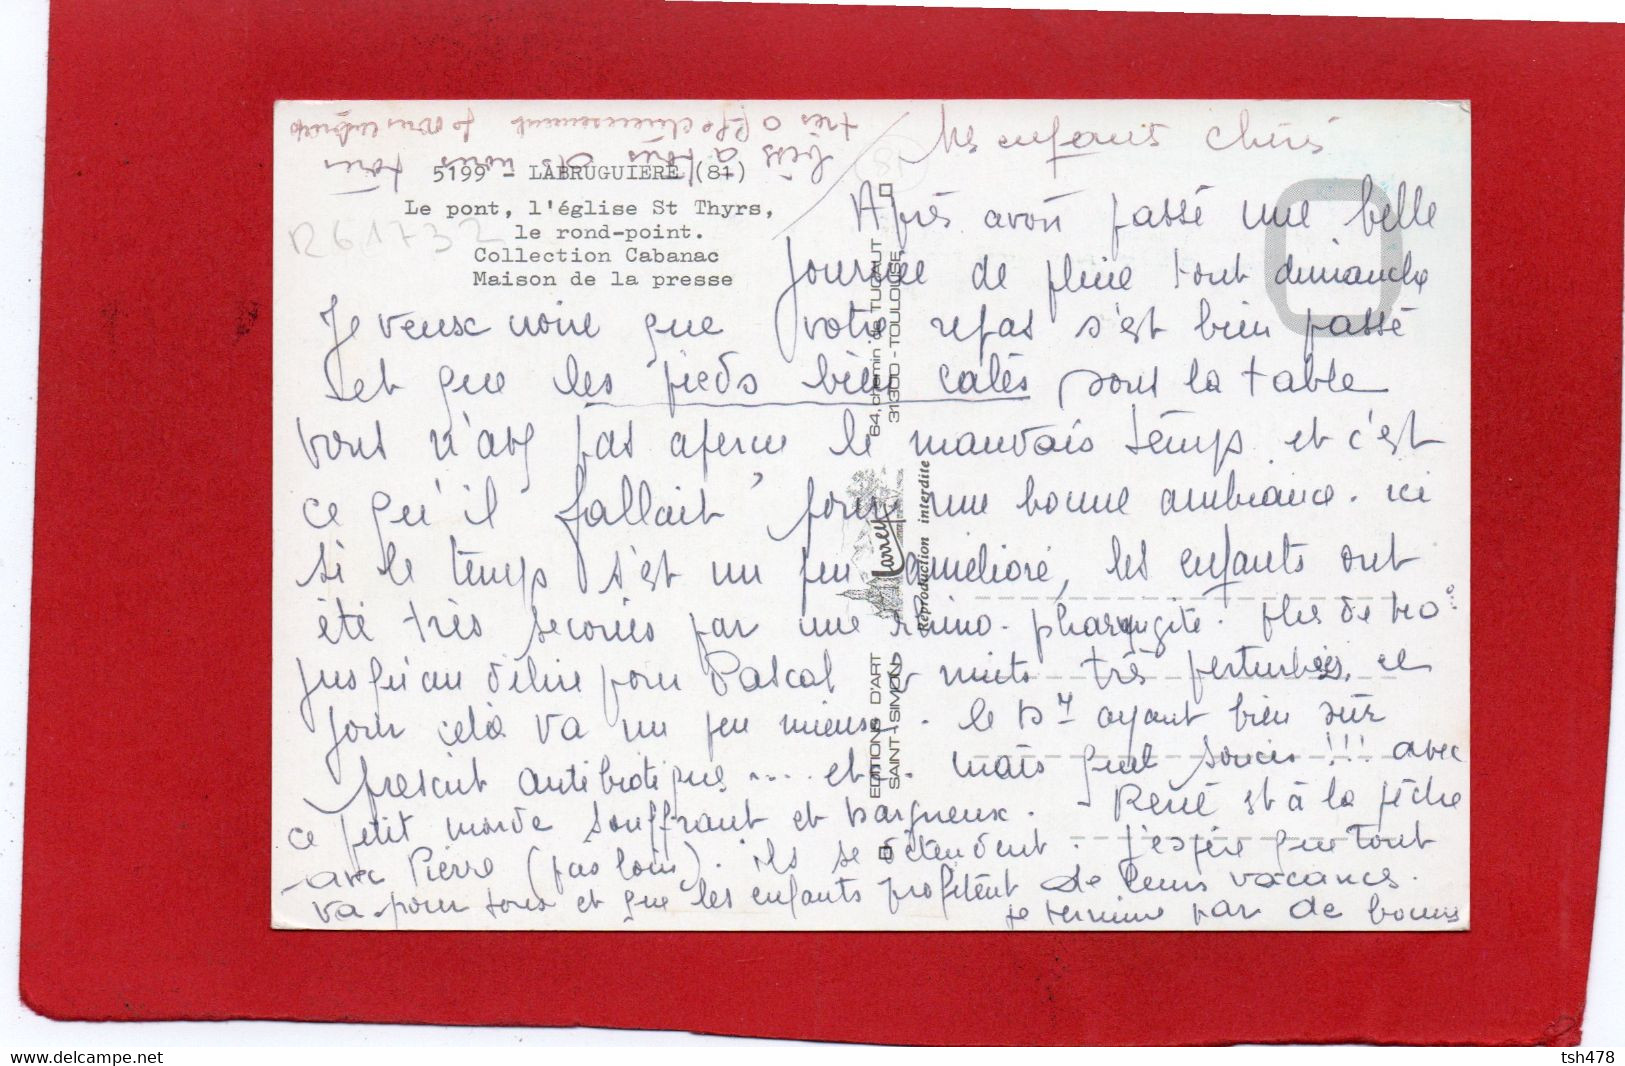 Mes enfants chéris
5199 - LABRUGUIERE (81)
Le pont, l'église St Thyrs,
le rond-point.
Collection Cabanac
Maison de la presse
R61732
Après avoir passé une belle
journée de pluie tout dimanche
Je veux croire que votre repas s'est bien passé
et que les pieds bien calés sous la table
vous n'avez pas aperçu le mauvais temps et c'est
ce qu'il fallait pour une bonne ambiance. ici
si le temps s'est un peu amélioré, les enfants ont
été très secoués par une rhino-pharyngite. plus de 40°
jusqu'au délire pour Pascal nuits très perturbées, ce
jour celà va un peu mieux. le Dr ayant bien sûr
prescrit antibiotique .... et .. mais quel soucis !!! avec
ce petit monde souffrant et hargneux. - René est à la pêche
avec Pierre (pas loin). ils se détendent. j'espère que tout
va pour tous et que les enfants profitent de leurs vacances.
je termine par de bons
bises à tous de nous tous
très affectueusement je vous embrasse
64, chemin de TUCAUT
31300 - TOULOUSE
Larrey
Reproduction interdite
EDITIONS D'ART
SAINT-SIMON
www.delcampe.net
tsh478